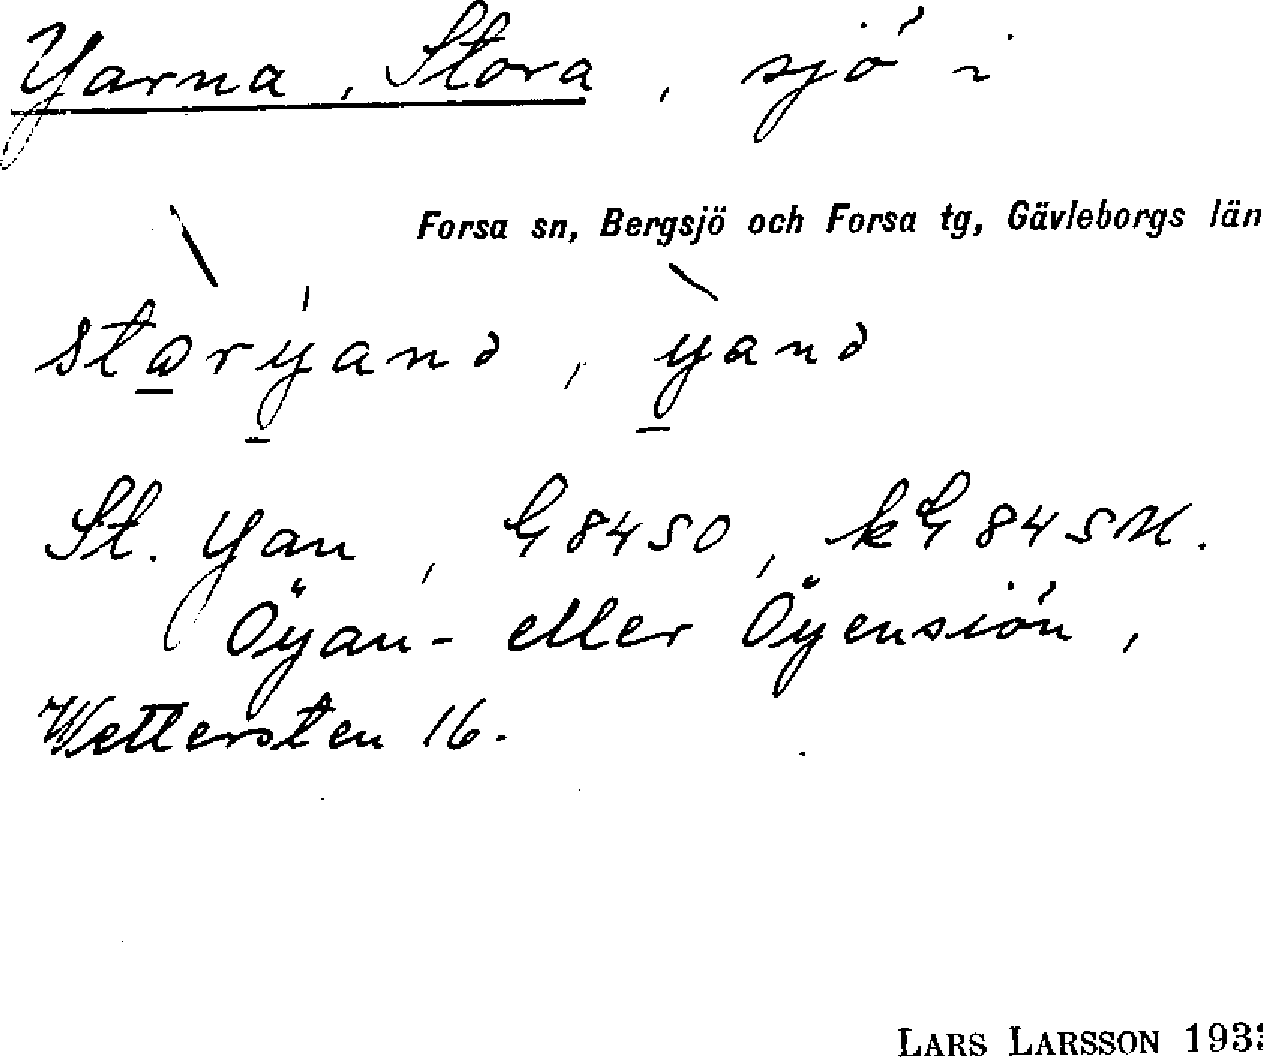 Yarna, Stora, sjö i
Forsa sn, Bergsjö och Forsa tg, Gävleborgs län
St. Yan, G 84 SO, kG 84 SU.
Öyan- eller Öyensiön,
Wettersten 16.
LARS LARSSON